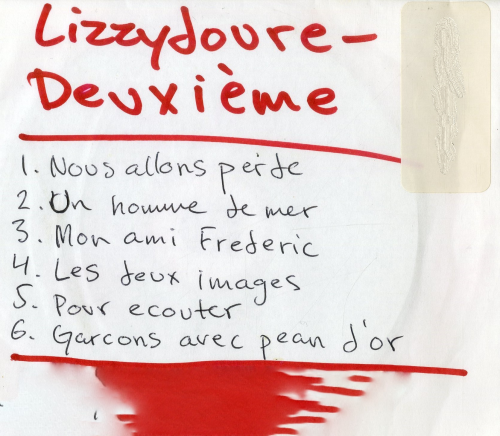 Lizzydoure-
Deuxième
1. Nous allons perde
2. Un homme de mer
3. Mon ami Frederic
4. Les deux images
5. Pour ecouter
6. Garcons avec pean d'or